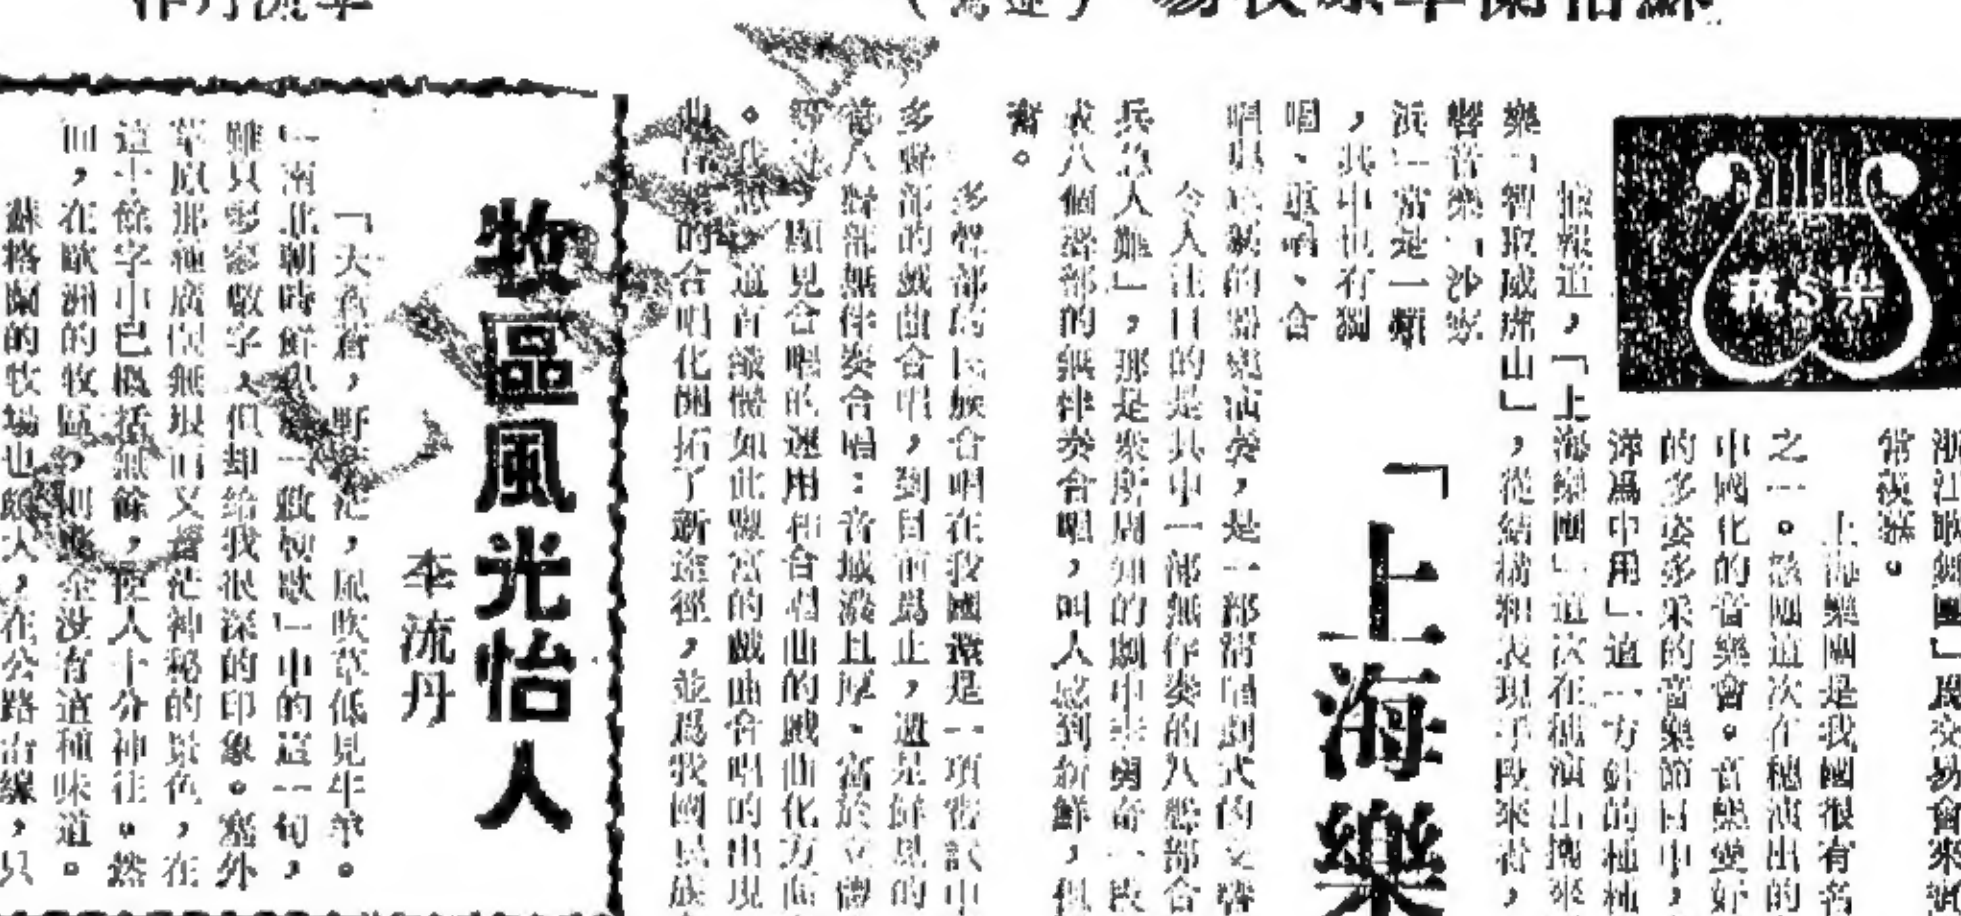 蘇格蘭草原牧場（速寫）
李流丹作
樂S藝
浙江歌舞團」爲交易會來賓
上海樂團是我國很有名
之一。該團這次在穗演出的
中國化的音樂會。音樂愛好
的多姿多采的音樂節目中，
洋爲中用」這一方針的種種
據報道，「上海樂團」這次在穗演出攜來
樂「智取威虎山」，從結構和表現手段來看，
響音樂「沙家
浜」當是一類
，其中也有獨
唱、重唱、合
「上海樂
唱與的器樂演奏，是一部清唱劇式的交響
令人注目的是其中一部無伴奏的八聲部合
兵急人難」，那是衆所周知的劇中勇奇一段
成八個聲部的無伴奏合唱，叫人感到新鮮，但
奮。
多聲部的民族合唱在我國還是一項嘗試中
多聲部的戲曲合唱，到目前爲止，還是鮮見的
八聲部無伴奏合唱：音域濶且厚、富於立體
顯見合唱的運用和合唱曲的戲曲化方面
。這首如此豐富的戲曲合唱的出現
的合唱化開拓了新途徑，並爲我國民族
牧區風光怡人
李流丹
「天蒼蒼，野茫茫，風吹草低見牛羊。
」南北朝時鮮卑「敕勒歌」中的這一句，
雖只寥寥數字，但却給我很深的印象。塞外
草原那種廣濶無垠而又蒼茫神秘的景色，在
這十餘字中已概括無餘，使人十分神往。然
而，在歐洲的牧區，則完全沒有這種味道。
蘇格蘭的牧場也頗大，在公路沿線，只